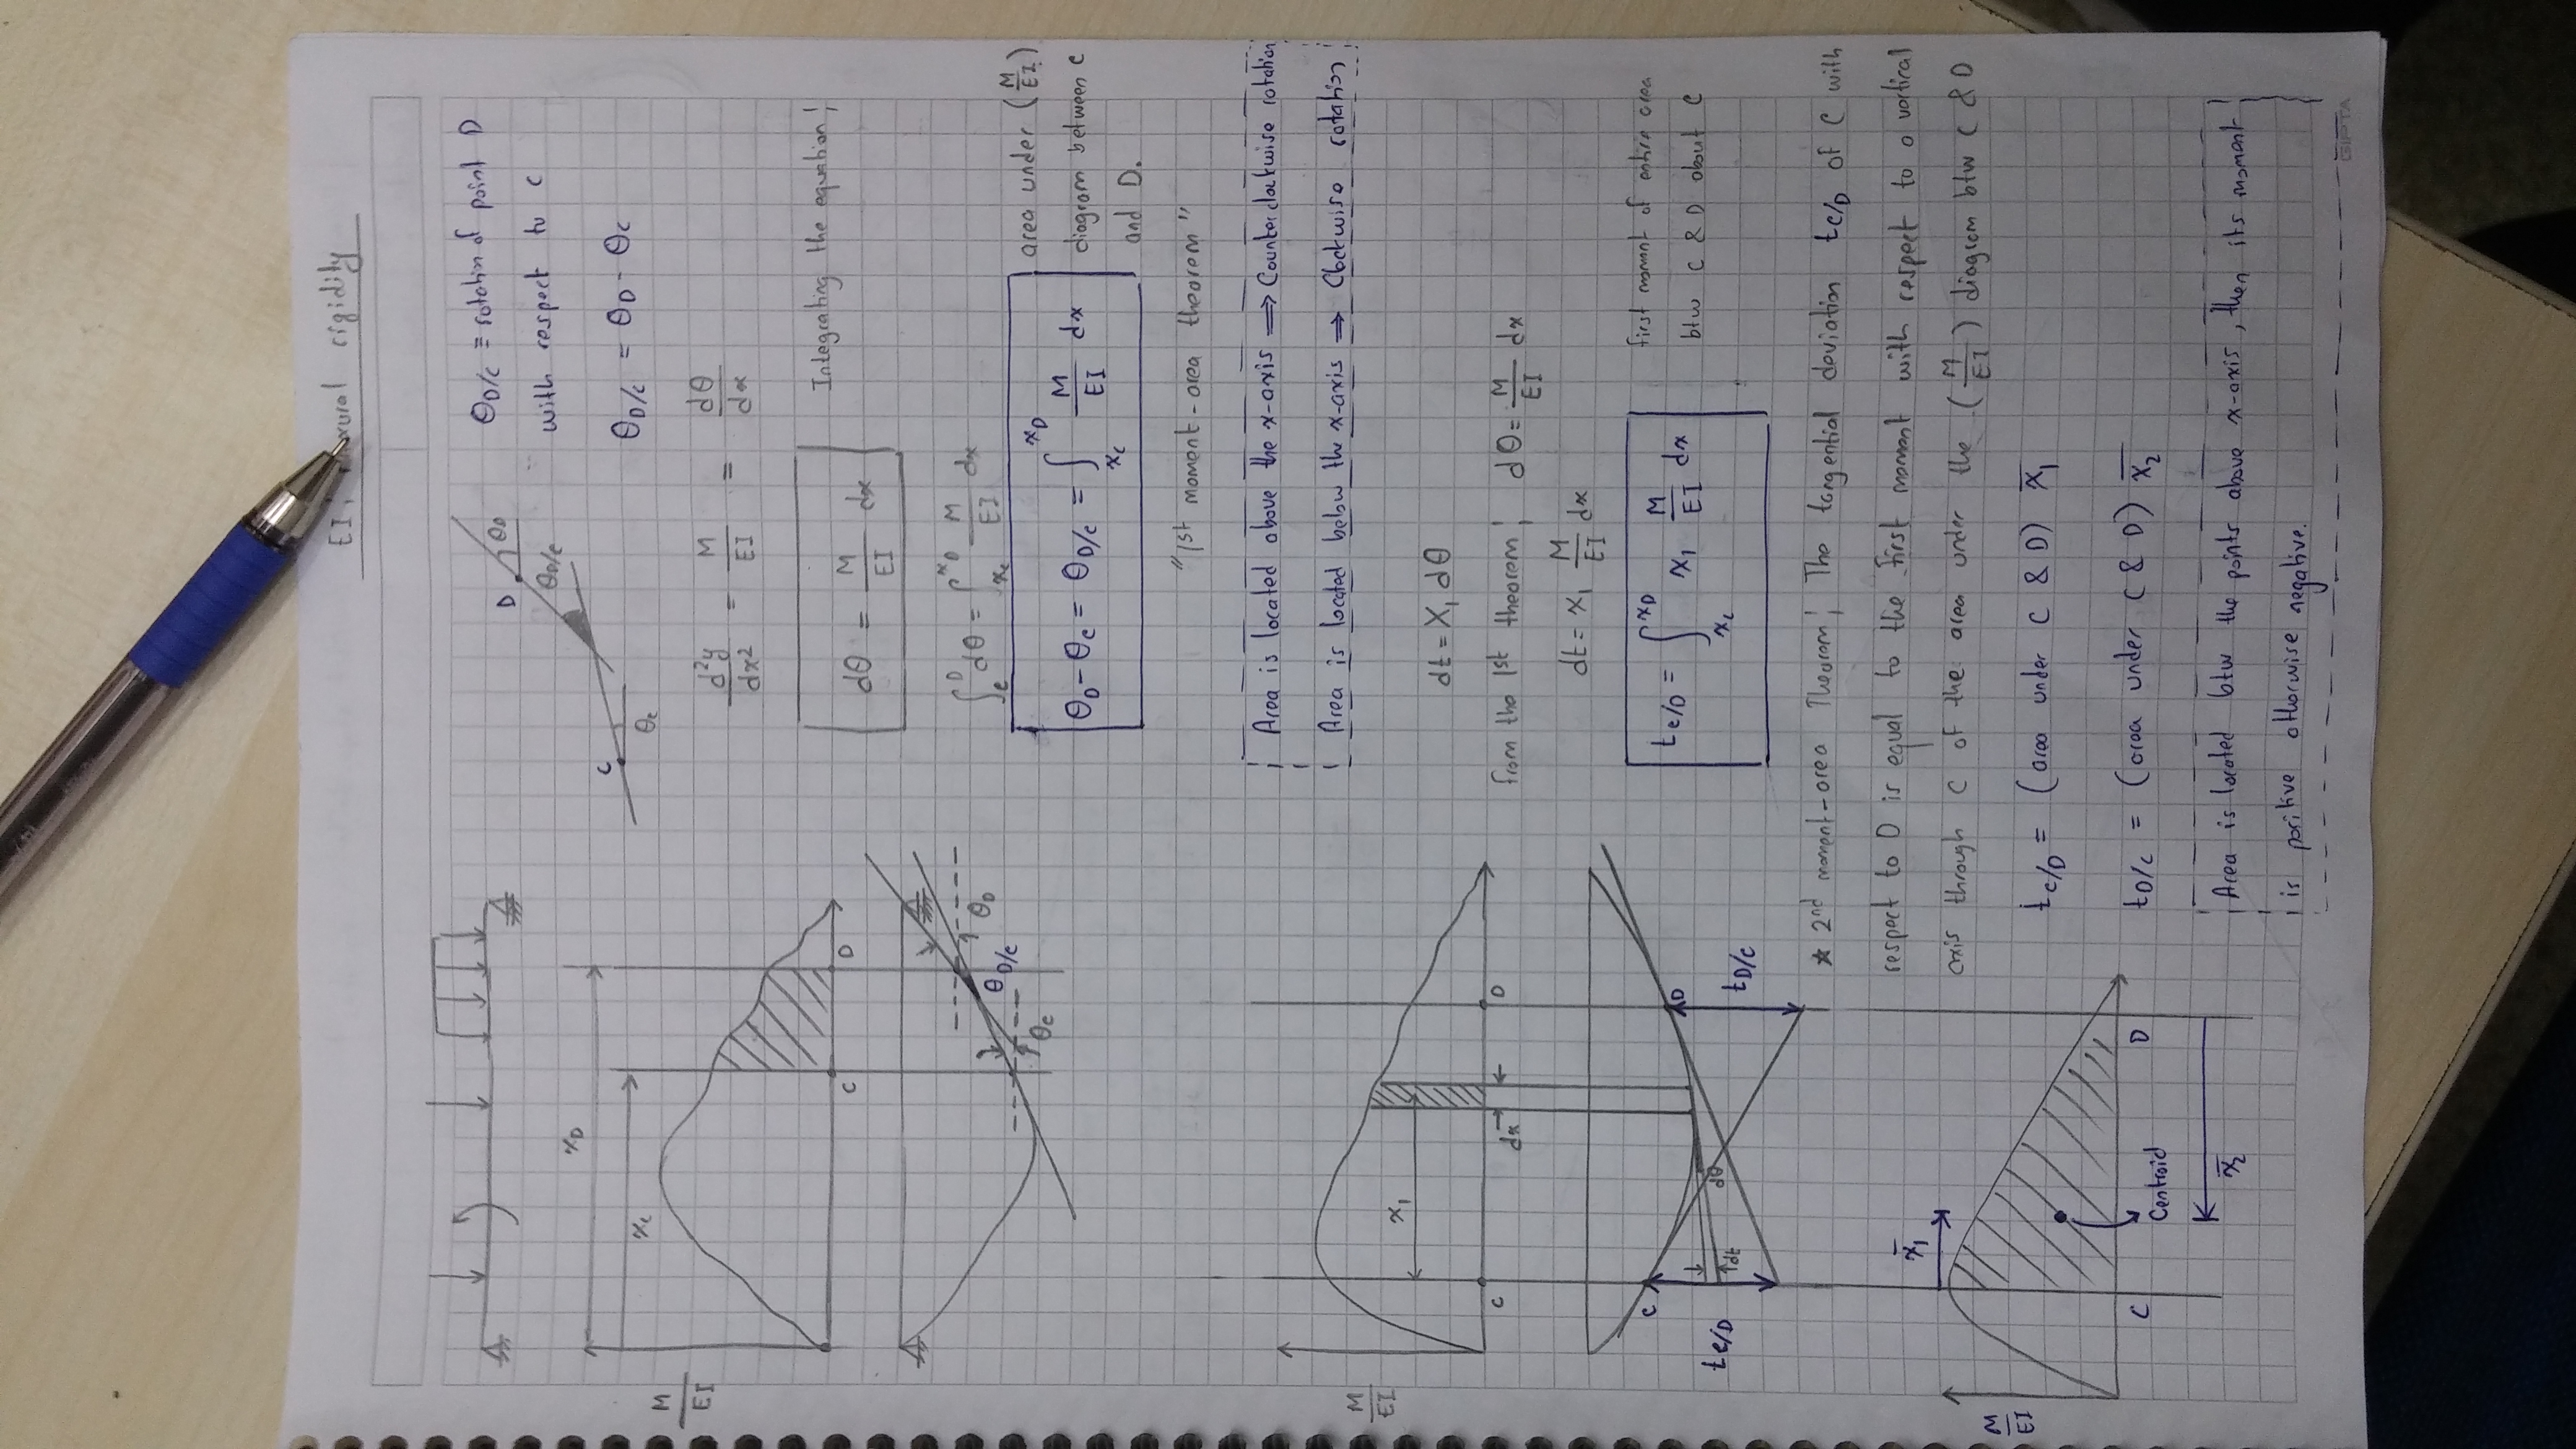 EI, rigidity
θD/C = rotation of point D
with respect to C
θD/C = θD - θC
C
θC
D
θD/C
θD
xD
xC
M/EI
C
D
θC
θD/C
θD
d²y/dx² = M/EI = dθ/dx
Integrating the equation;
dθ = M/EI dx
∫_C^D dθ = ∫_xC^xD M/EI dx
θD - θC = θD/C = ∫_xC^xD M/EI dx
area under (M/EI)
diagram between C
and D.
"1st moment-area theorem"
Area is located above the x-axis ⇒ Counterclockwise rotation
Area is located below the x-axis ⇒ Clockwise rotation
M/EI
x1
C
dx
D
dt = x1 dθ
from the 1st theorem; dθ = M/EI dx
dt = x1 M/EI dx
tC/D = ∫_xC^xD x1 M/EI dx
first moment of entire area
btw C & D about C
tC/D
C
dt
dθ
D
tD/C
* 2nd moment-area Theorem; The tangential deviation tC/D of C with
respect to D is equal to the first moment with respect to a vertical
axis through C of the area under the (M/EI) diagram btw C & D
M/EI
x̄1
C
Centroid
D
x̄2
tC/D = (area under C & D) x̄1
tD/C = (area under C & D) x̄2
Area is located btw the points above x-axis, then its moment
is positive otherwise negative.
GIPTA